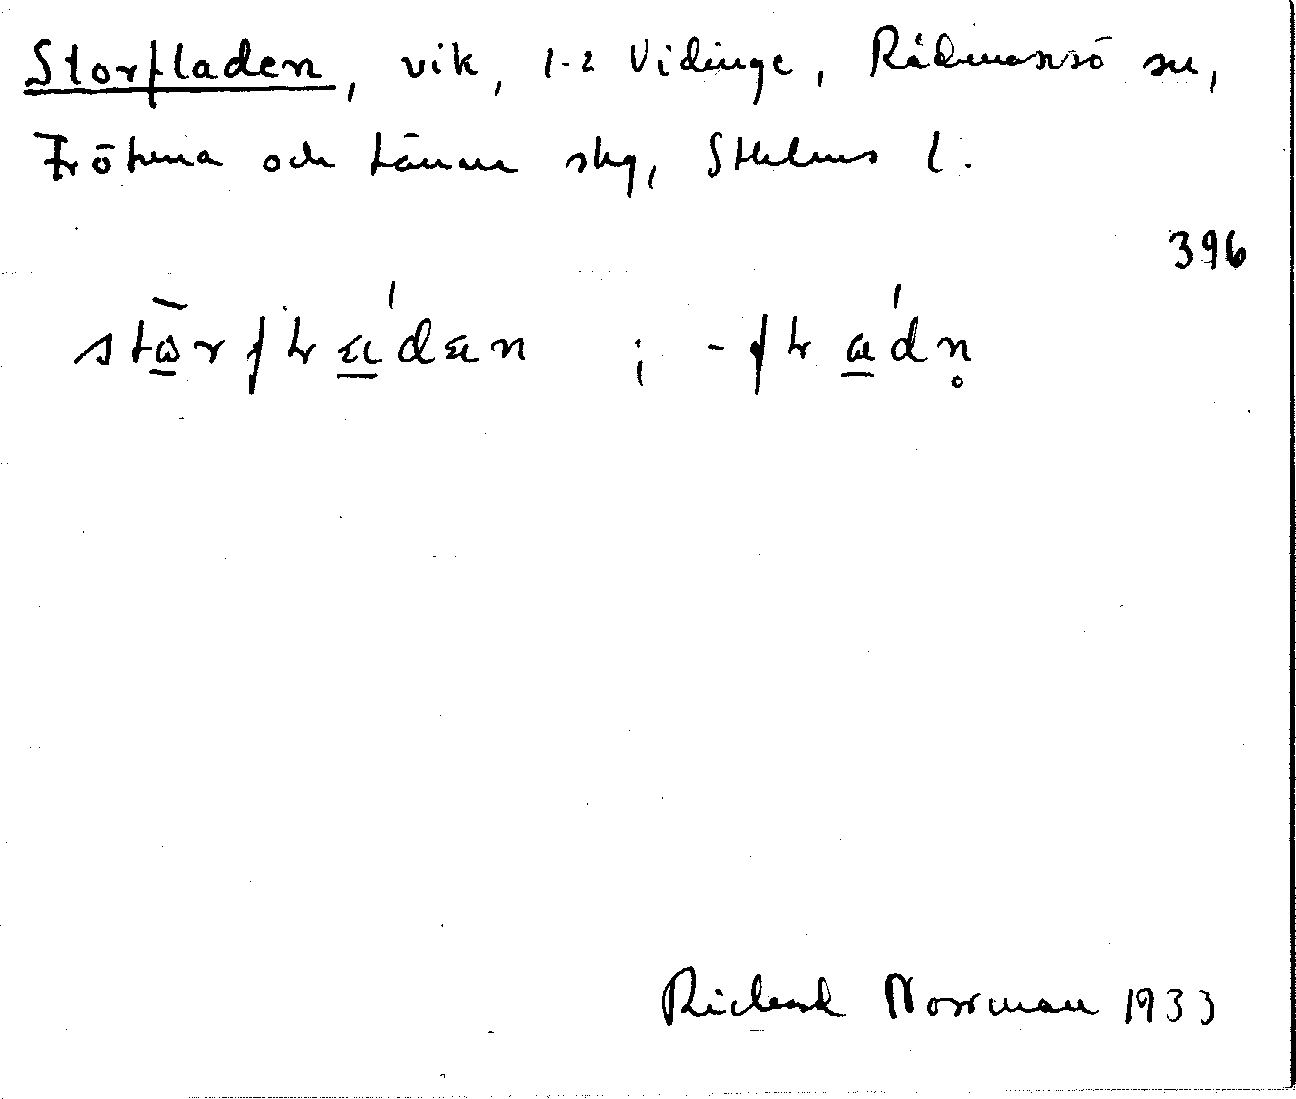 Storfladen, vik, 1-2 Vidinge, Rådmansö sn,
Frötuna och Länna skg, Sthlms l.
396
Richard Norrman 1933